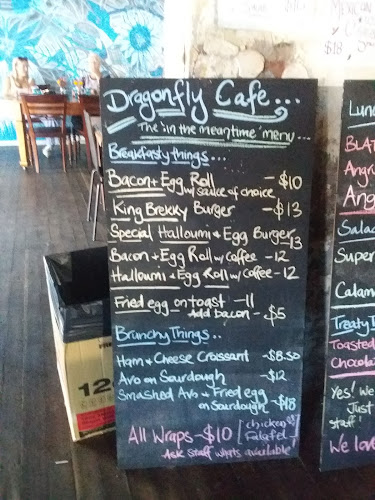 Dragonfly Cafe...
The 'in the meantime' menu...
Breakfasty things...
Bacon + Egg Roll - $10
w/ sauce of choice
King Brekky Burger - $13
Special Halloumi + Egg Burger
- 13
Bacon + Egg Roll w/ coffee - 12
Halloumi + Egg Roll w/ coffee - 12
Fried egg on toast - 11
Add bacon - $5
Brunchy Things..
Ham + Cheese Croissant - $8.50
Avo on Sourdough - $12
Smashed Avo + Fried egg
on Sourdough - $18
All Wraps - $10 / chicken
Falafel
Ask staff whats available
12
$18
Angri
Ang
Salad
Super
Calam
Treaty T
Toasted
Chocola
Yes! We
Just
staff!
We love